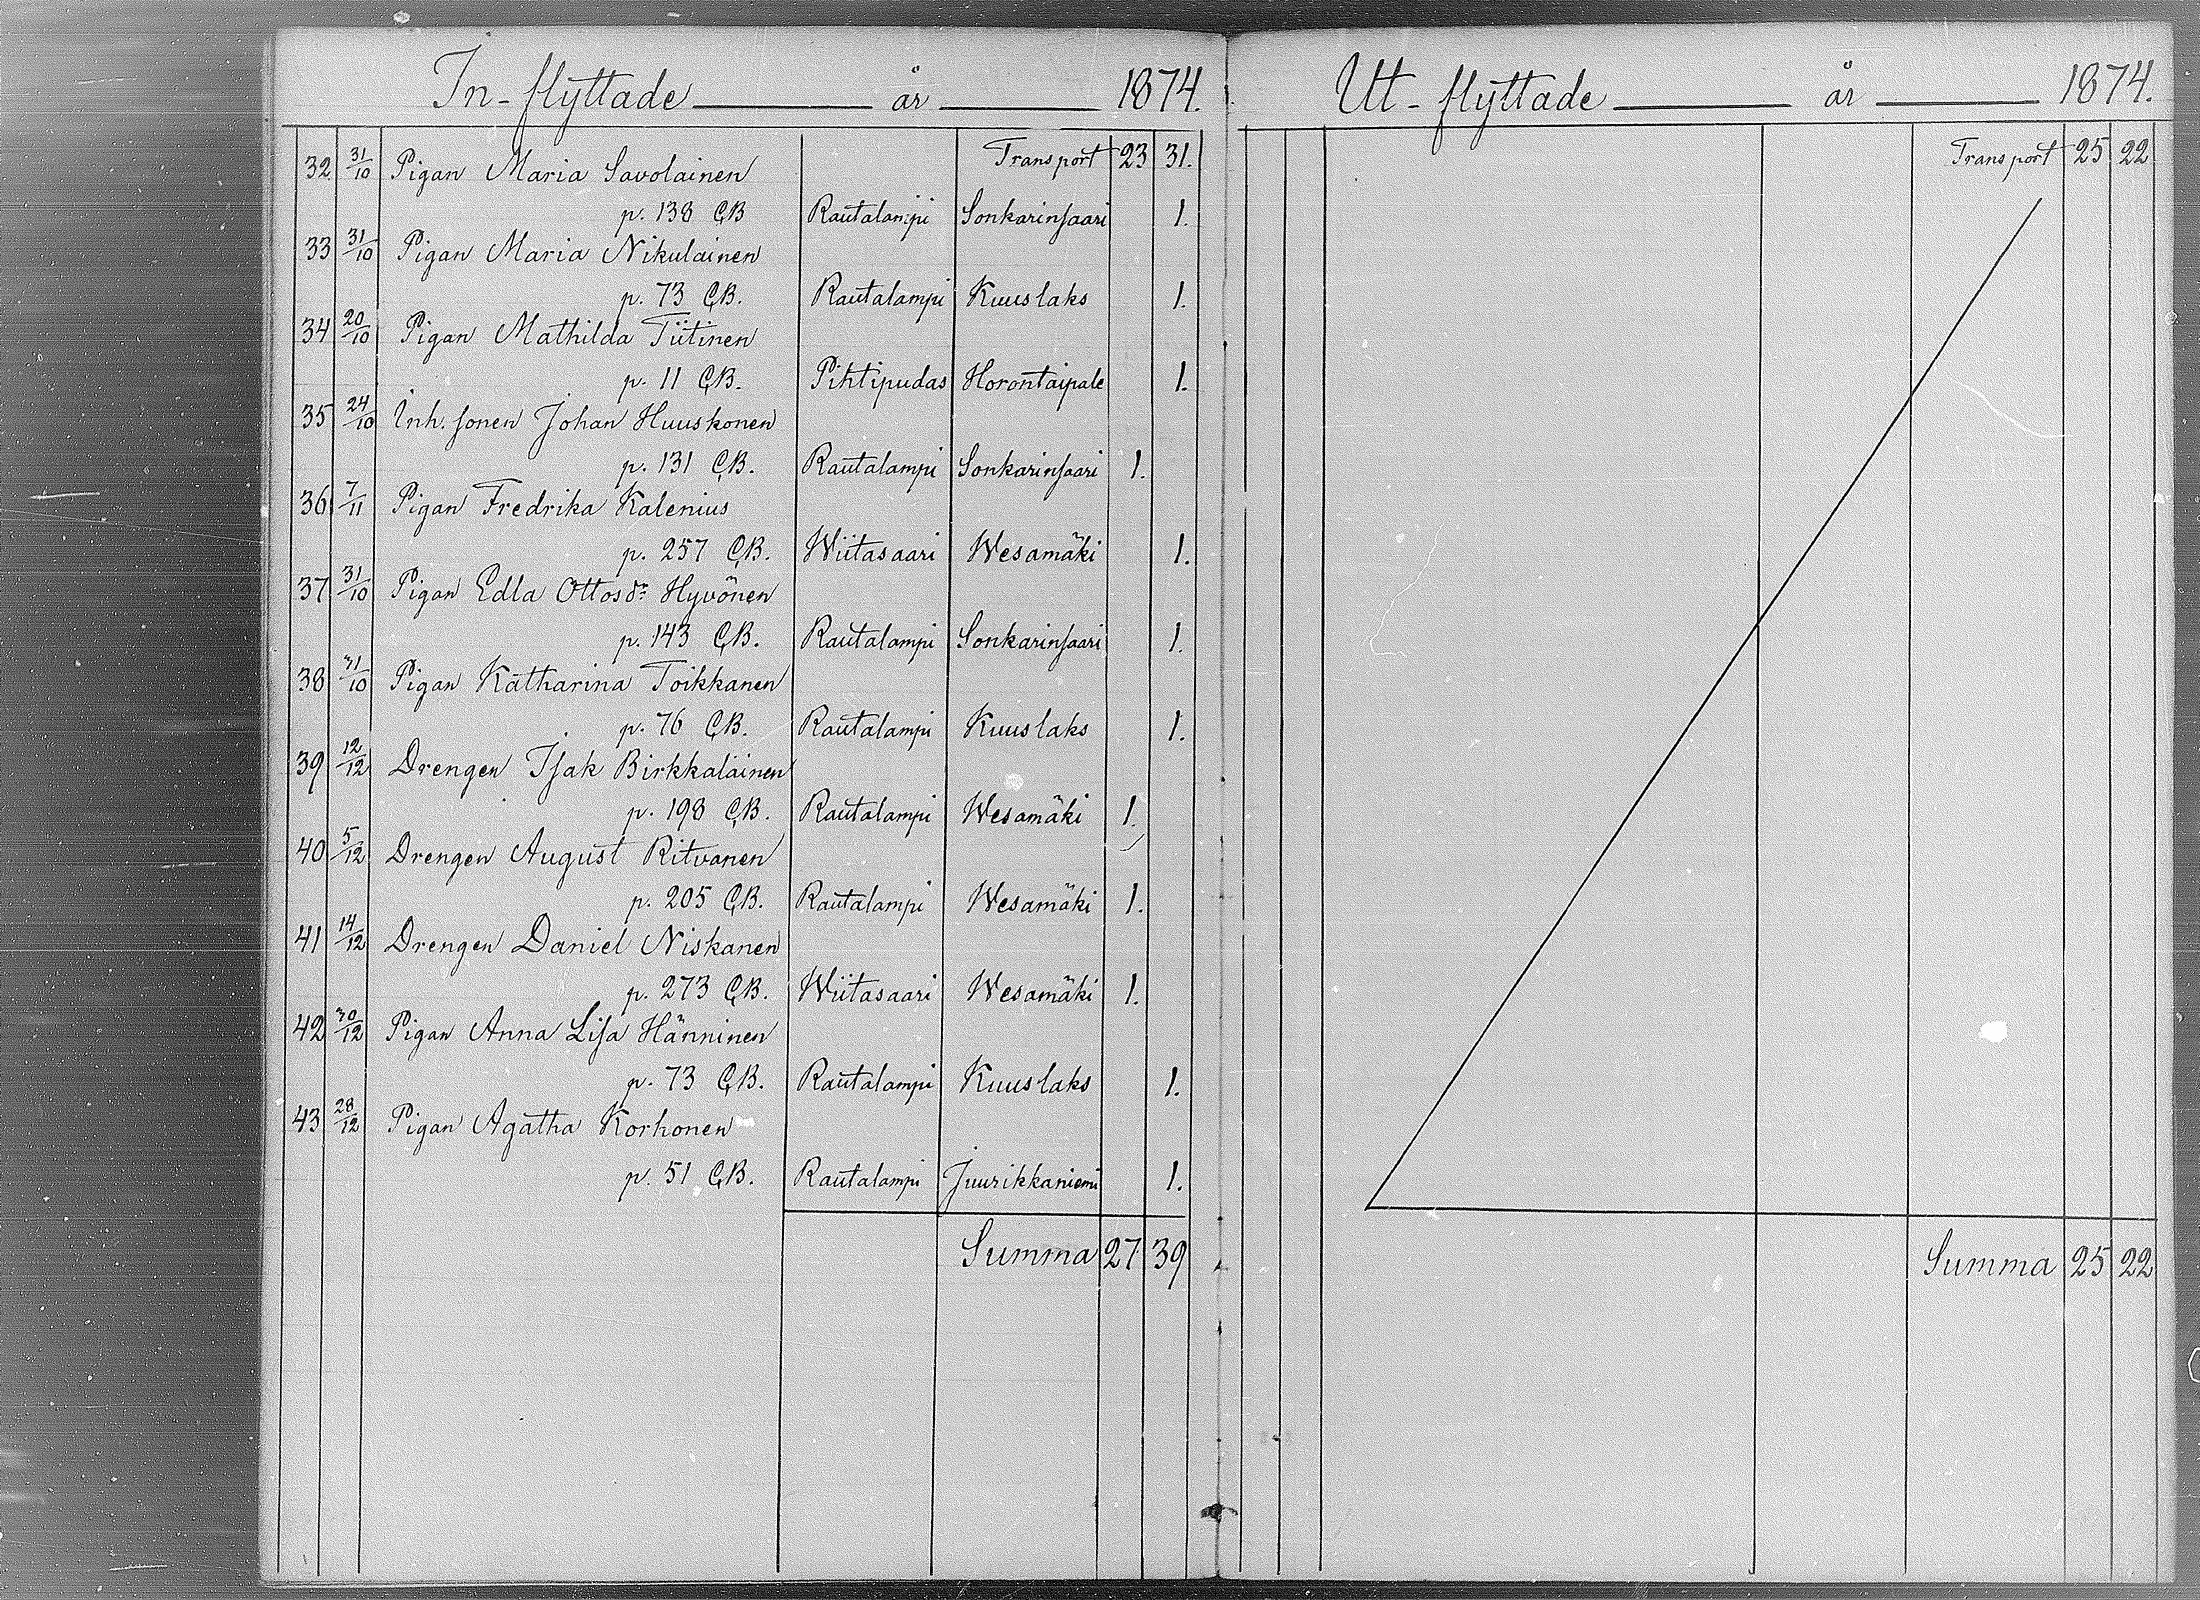 In-flyttade år 1874.
Transport 23 31.
32 31/10 Pigan Maria Savolainen
p. 138 C,B Rautalampi Sonkarinsaari 1.
33 31/10 Pigan Maria Nikulainen
p. 73 C,B. Rautalampi Kuuslaks 1.
34 20/10 Pigan Mathilda Tiitinen
p. 11 C,B. Pihtipudas Horontaipale 1.
35 24/10 Inh. sonen Johan Huuskonen
p. 131 C,B. Rautalampi Sonkarinsaari 1.
36 7/11 Pigan Fredrika Kalenius
p. 257 C,B. Wiitasaari Wesamäki 1.
37 31/10 Pigan Edla Ottosdr Hyvönen
p. 143 C,B. Rautalampi Sonkarinsaari 1.
38 31/10 Pigan Katharina Toikkanen
p. 76 C,B. Rautalampi Kuuslaks 1.
39 12/12 Drengen Isak Birkkalainen
p. 198 C,B. Rautalampi Wesamäki 1.
40 5/12 Drengen August Ritvanen
p. 205 C,B. Rautalampi Wesamäki 1.
41 14/12 Drengen Daniel Niskanen
p. 273 C,B. Wiitasaari Wesamäki 1.
42 30/12 Pigan Anna Lisa Hänninen
p. 73 C,B. Rautalampi Kuuslaks 1.
43 28/12 Pigan Agatha Korhonen
p. 51 C,B. Rautalampi Juurikkaniemi 1.
Summa 27 39
Ut-flyttade år 1874.
Transport 25 22
Summa 25 22